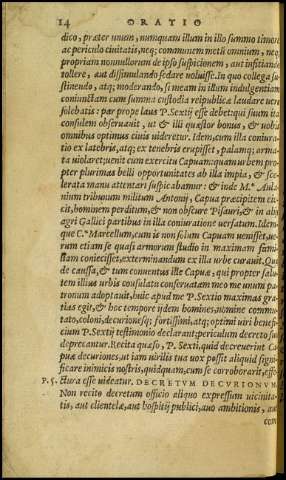 14 ORATIO
dico, præter unum, nunquam illum in illo summo timore
ac periculo ciuitatis, neq; communem metū omnium, neq;
propriam nonnullorum de ipso suspicionem, aut infitiando
tollere, aut dissimulando sedare uoluisse. In quo collega su
stinendo, atq; moderando, si meam in illum indulgentiam
coniunctam cum summa custodia reipublicæ laudare uere
solebatis: par prope laus P. Sextij esse debet: qui suum ita
consulem obseruauit, ut & illi quæstor bonus, & uobis
omnibus optimus ciuis uideretur. Idem, cum illa coniura-
tio ex latebris, atq; ex tenebris erupisset, palamq; arma-
ta uiolaret; uenit cum exercitu Capuam: quam urbem pro-
pter plurimas belli opportunitates ab illa impia, & sce-
lerata manu attentari suspicabamur: & inde M. Aula-
nium tribunum militum Antonij, Capua præcipitem eie-
cit, hominem perditum, & non obscure Pisauri, & in alijs
agri Gallici partibus in illa coniuratione uersatum. Idem-
que C. Marcellum, cum is non solum Capuam uenisset, ue-
rum etiam se quasi armorum studio in maximam fami-
liam coniecisset, exterminandum ex illa urbe curauit. Qua
de caussa, & tum conuentus ille Capuæ, qui propter salu-
tem illius urbis consulatu conseruatam meo me unum pa-
tronum adoptauit, huic apud me P. Sextio maximas gra-
tias egit, & hoc tempore ijdem homines, nomine commu-
tato, coloni, decurionesq; fortissimi, atq; optimi uiri benefi-
cium P. Sextij testimonio declarant, periculum decreto suo
deprecantur. Recita quæso, P. Sexti, quid decreuerint Ca-
puæ decuriones, ut iam uirilis tua uox possit aliquid signi-
ficare inimicis nostris, quidquam, cum se corroborarit, effe-
P. S. ctura esse uideatur. DECRETVM DECVRIONVM.
Non recito decretum officio aliquo expressum uicinita-
tis, aut clientelæ, aut hospitij publici, aut ambitionis, aut
com